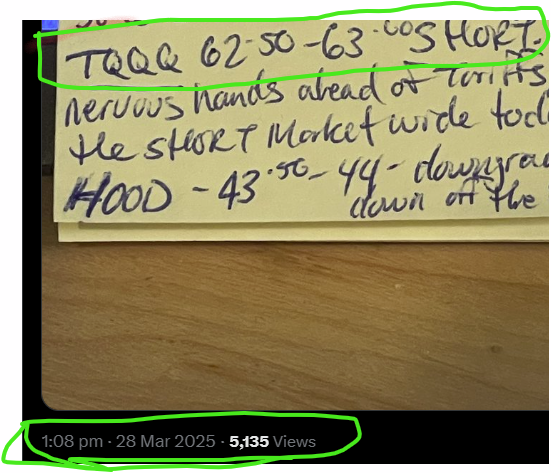 TQQQ 62.50-63.00 SHORT.
nervous hands ahead of Tariffs
the SHORT Market wide
HOOD - 43.50-44-
down off the
1:08 pm · 28 Mar 2025 · 5,135 Views